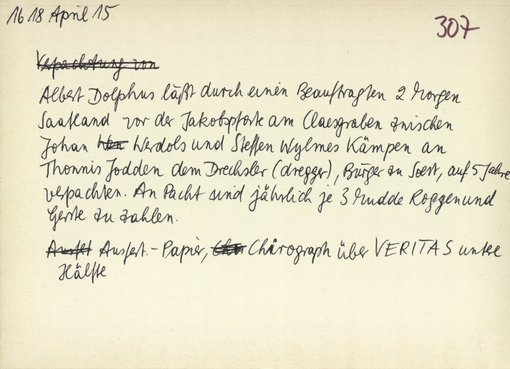 1618 April 15
307
Verpachtung von
Albert Dolphus läßt durch einen Beauftragten 2 Morgen
Saatland vor der Jakobspforte am Claesgraben zwischen
Johan Werdols und Steffen Wylmes Kämpen an
Thonnis Jodden dem Drechsler (dregger), Bürger zu Soest, auf 5 Jahre
verpachten. An Pacht sind jährlich je 3 Mudde Roggen und
Gerste zu zahlen.
Ausfert.- Papier, Chirograph über VERITAS untere
Hälfte